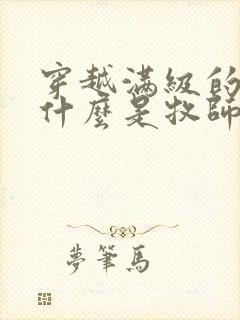 穿越滿級的
什麼是牧師
夢筆馬